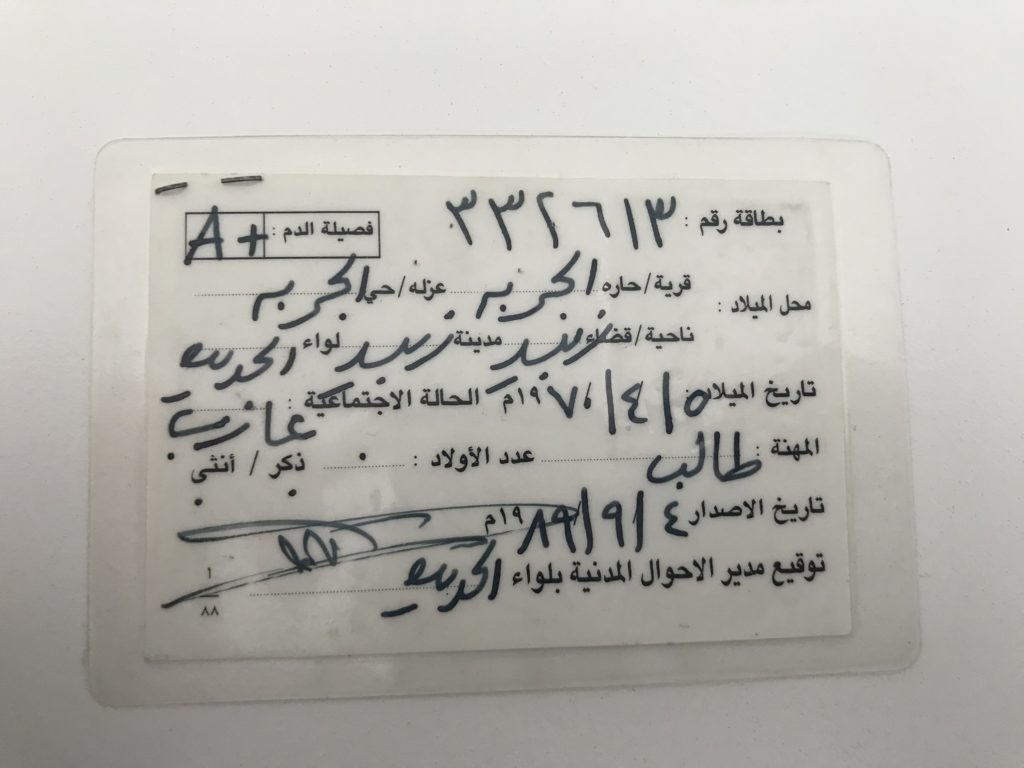 بطاقة رقم : ٣٣٢٦١٣ فصيلة الدم : A+
محل الميلاد : قرية/حاره الجربه عزله/حي الجربه
ناحية/قضاء زبيد مدينة زبيد لواء الحديده
تاريخ الميلاد : ٥/٤/١٩٧٠م الحالة الاجتماعية : عازب
المهنة : طالب عدد الأولاد : . ذكر / أنثى
تاريخ الاصدار ٤/٩/١٩٨٩م
توقيع مدير الاحوال المدنية بلواء الحديده
١
٨٨